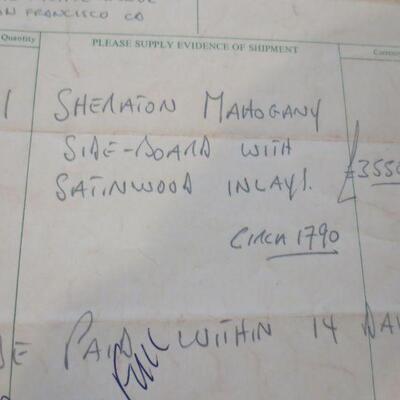 N FRANCISCO CA
Quantity PLEASE SUPPLY EVIDENCE OF SHIPMENT
1 SHERATON MAHOGANY
SIDE-BOARD WITH
SATINWOOD INLAYS. £3550
CIRCA 1790
BE PAID WITHIN 14 DA
FULL